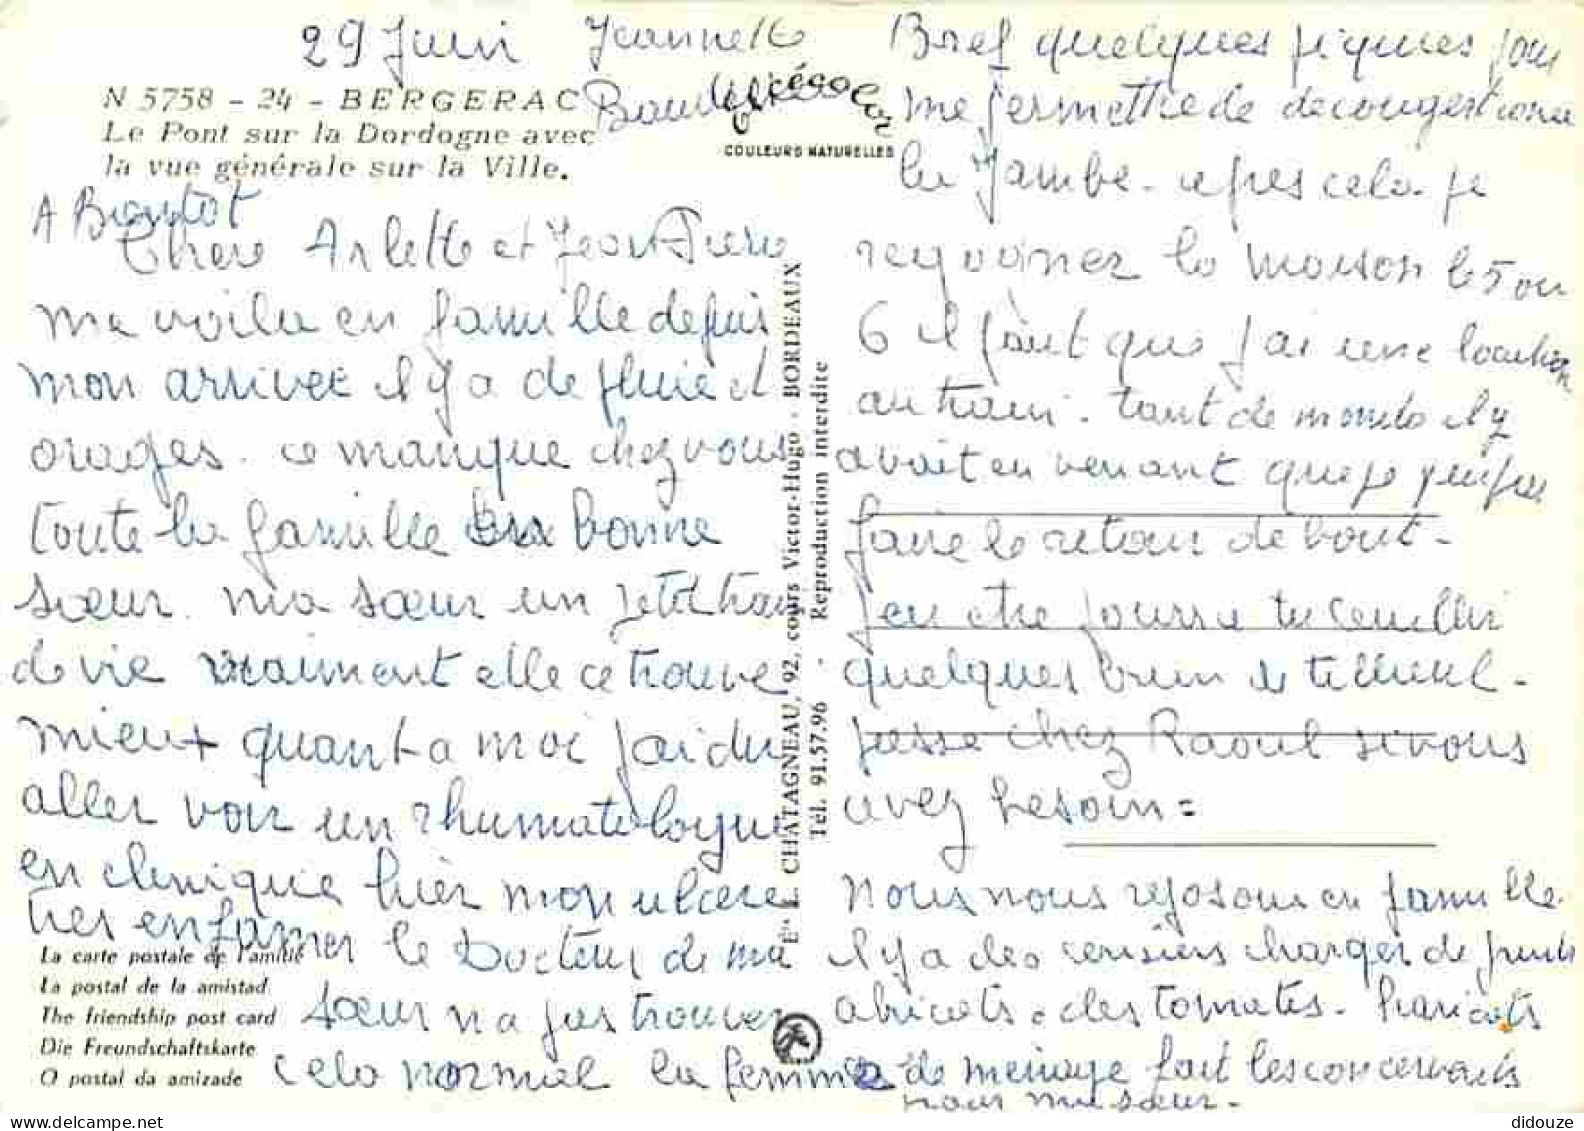 29 Juin
Jeannette
N 5758 - 24 - BERGERAC
Le Pont sur la Dordogne avec
la vue générale sur la Ville.
COULEURS NATURELLES
A Bientot
Chere Arlette et Jean Pierre
me voila en famille depuis
mon arrivee il y a de pluie et
orages. ce manque chez vous
toute la famille bonne
sœur. ma sœur un petit train
de vie vraiment elle ce trouve
mieux quant a moi j'ai du
aller voir un rhumatologue
en clinique hier mon ulcere
tres enflamer le Docteur de ma
sœur n a pas trouver
cela normal la femme de menage fait les conserves
pour ma sœur.
La carte postale de l'amitié
La postal de la amistad
The friendship post card
Die Freundschaftskarte
O postal da amizade
Ets CHATAGNEAU, 92, cours Victor-Hugo - BORDEAUX
Tél. 91.57.96 Reproduction interdite
Bref quelques piqures pour
me permettre de decongestionne
la Jambe. apres cela je
regoigner la maison le 5 ou
6 il faut que j'ai une location
au train. tant de monde il y
avait en venant que je
faire le retour de bout.
peu etre pourra tu ceuillir
quelques brun de tilleul.
passe chez Raoul si vous
avez besoin =
nous nous reposons en famille.
il y a des cerisiers charger de fruits
abricots. des tomates. haricots
didouze